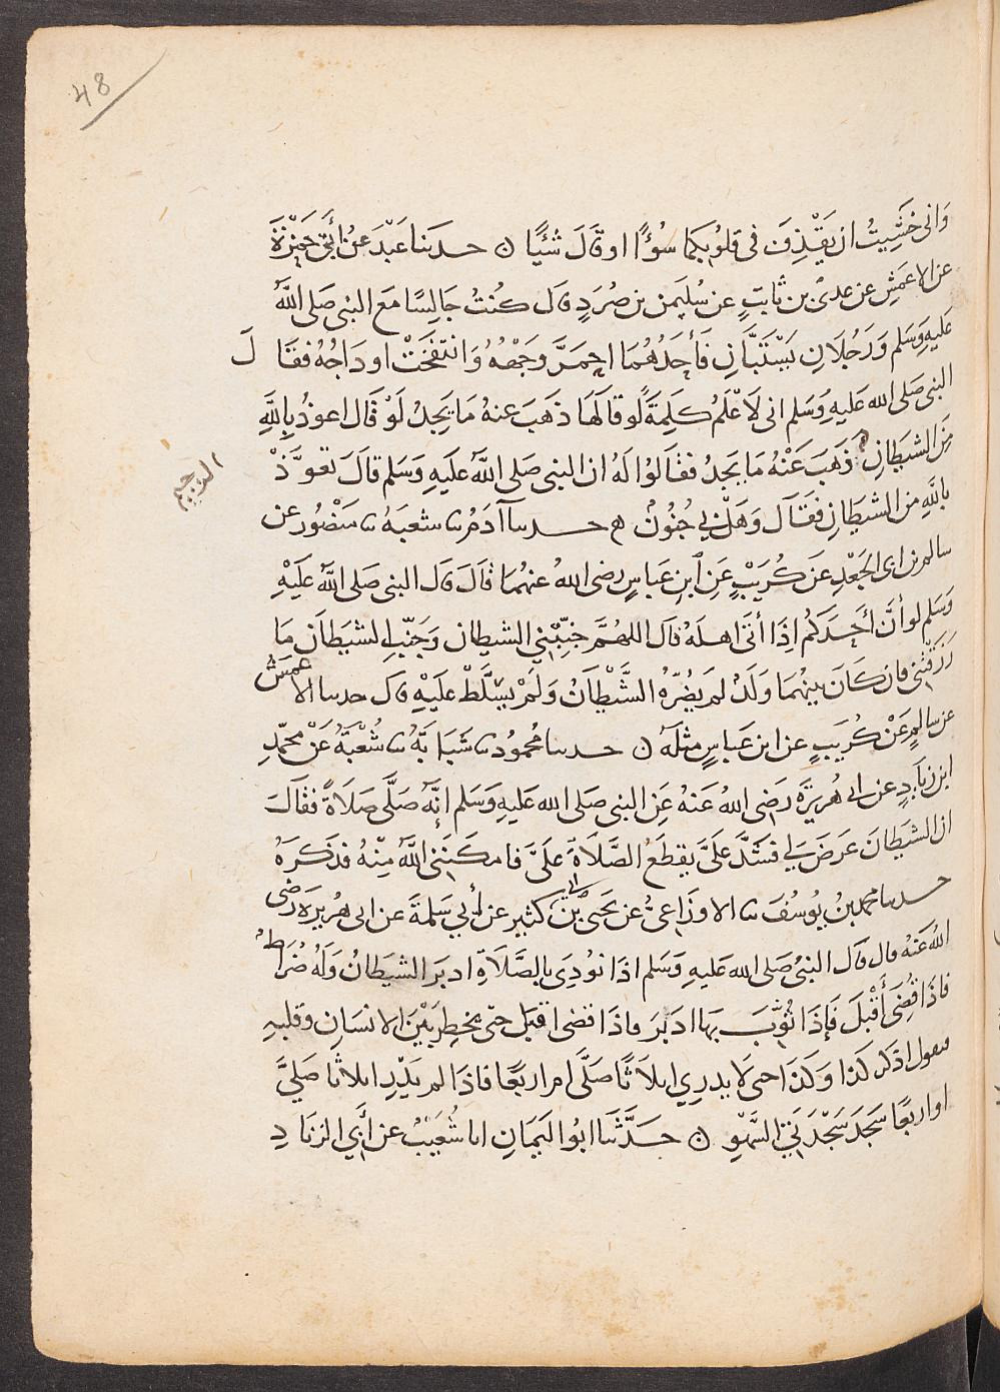 48
وَانى خَشِيتُ ان يَقْذِفَ فى قلوبكما سُوْءًا او قَالَ شَئًيا ن حدىنا عَبْدَ عنْ أَبى حَمْزَةَ
عن الاعمَشِ عن عدىّ بن ثابتٍ عن سُليمٰن بن صُرَدٍ قال كُنتُ جَالِسًا مَع النبى صَلى اللهُ
عَليهِ وَسَلم وَرَجُلَانِ يَسْتَبَّانِ فَأحَدُهُمَا احمَرَّ وَجْهُهُ وَانتَفَخَتْ اودَاجُهُ فقَالَ
النبى صَلى الله عَليهِ وَسَلم انى لَاعْلَمُ كلِمَةً لَو قالَهَا ذهَبَ عنهُ مَا يَجدُ لَوْ قَال اعوذُ بِاللَّهِ
مِنَ الشيطَانِ ذَهَبَ عَنْهُ مَا يَجدُ فقَالوُا لهُ ان النبى صَلى اللَّهُ عَليَهِ وَسَلم قالَ تعوَّذْ
الرجيم
باللَّهِ من الشيطَانِ فقَالَ وَهَلْ بى جُنُونٌ ح حدىنا آدَمُ ىا شعبَهُ ىا مَنْصُور عن
سالم بن ابى الجَعْدِ عَن كُرَيْبٍ عَنِ ابنِ عَباسٍ رضى اللهُ عنهُمَا قالَ قال النبى صَلى اللهُ عَليَهِ
وَسَلم لَو أنَّ أحَدَكُم اِذَا أتَى اهلَهُ قال اللهُمَّ جنِّبْنِي الشيطان وَجَنِّبِ الشيطَان مَا
رَزَقْتَنِى فان كَانَ بينهُمَا وَلَدٌ لم يَضُرّهُ الشَّيْطَانُ وَلَمْ يسَلَّطْ عليَهِ قال حدىنا الاعمَشُ
عن سالمٍ عَنْ كُريَبٍ عن ابن عَباسٍ مثلَهُ ن حدىنا محمُودٌ ىا شَبَابَةُ ىا شُعْبَةُ عَنْ محمّدِ
ابن زيَادٍ عن ابى هُريرَةَ رَضى اللهُ عَنهُ عَنِ النبى صَلى الله عَليهِ وَسَلم اِنَّهُ صَلَّى صَلَاةً فقَالَ
ان الشيطَانَ عَرَضَ لِي فشَدَّ عَلىَّ يقطَعُ الصَّلَاةَ عَلىَّ فامكَنَنِى اللهُ مِنْهُ فذكرَهُ
حدىنا محمد بنُ يوُسُفَ ىا الاوزَاعىُّ عن يَحَيى بْنِ ابى كثير عن أبي سَلمةَ عن ابى هُريرَةَ رَضى
اللهُ عَنْهُ قال قال النبىُّ صَلى الله عَليهِ وَسَلم اذَا نوُدِىَ بالصَّلَاةِ ادبَرَ الشيطَانُ وَلَهُ ضُرَاطٌ
فاذَا قُضِىَ أقْبَلَ فَإذَا ثُوِّبَ بهَا ادبَرَ فاذَا قضى اقبَلَ حتىّ يخطِر بَيْنَ الانسَانِ وَقلبهِ
فىقول اذكر كذا وَكذَا حىى لَا يدرِي اىلاَثًا صَلَّى ام اربَعًا فاذَا لم يَدْرِ اىلاثا صَليَّ
او اربَعًا سَجَدَ سَجْدَتَىِ السَّهْوِ ن حَدَّثَنا ابُو اليَمَانِ انا شُعَيْبٌ عن أبِي الزنَادِ